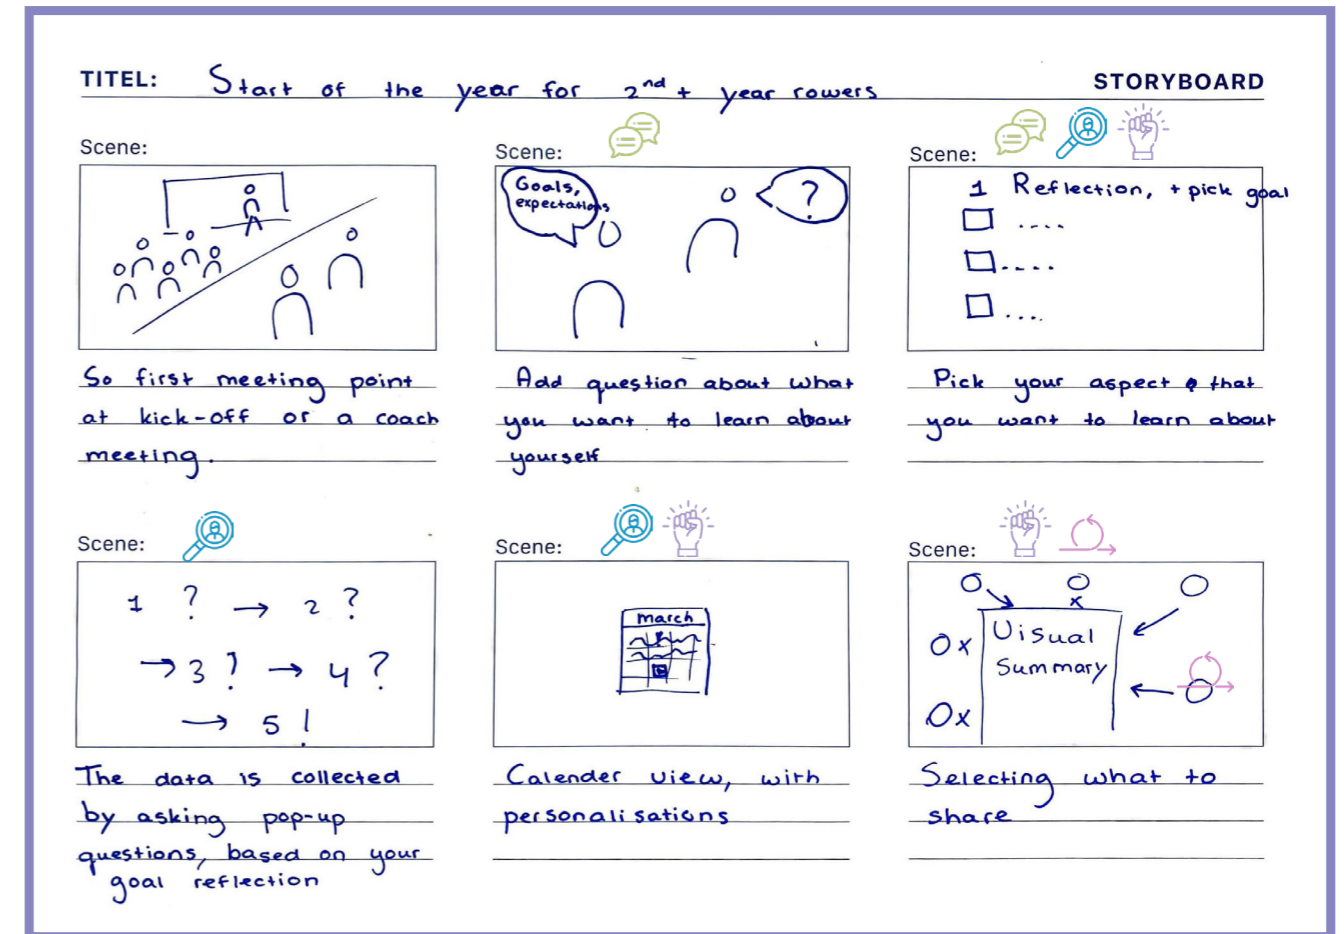 TITEL: Start of the year for 2nd + year rowers
STORYBOARD
Scene:
So first meeting point
at kick-off or a coach
meeting.
Scene:
Goals,
expectations
?
Add question about what
you want to learn about
yourself
Scene:
1 Reflection, + pick goal
....
....
....
Pick your aspect that
you want to learn about
Scene:
1 ? → 2 ?
→ 3 ? → 4 ?
→ 5 !
The data is collected
by asking pop-up
questions, based on your
goal reflection
Scene:
march
Calender view, with
personalisations
Scene:
x
x
Visual
Summary
x
Selecting what to
share